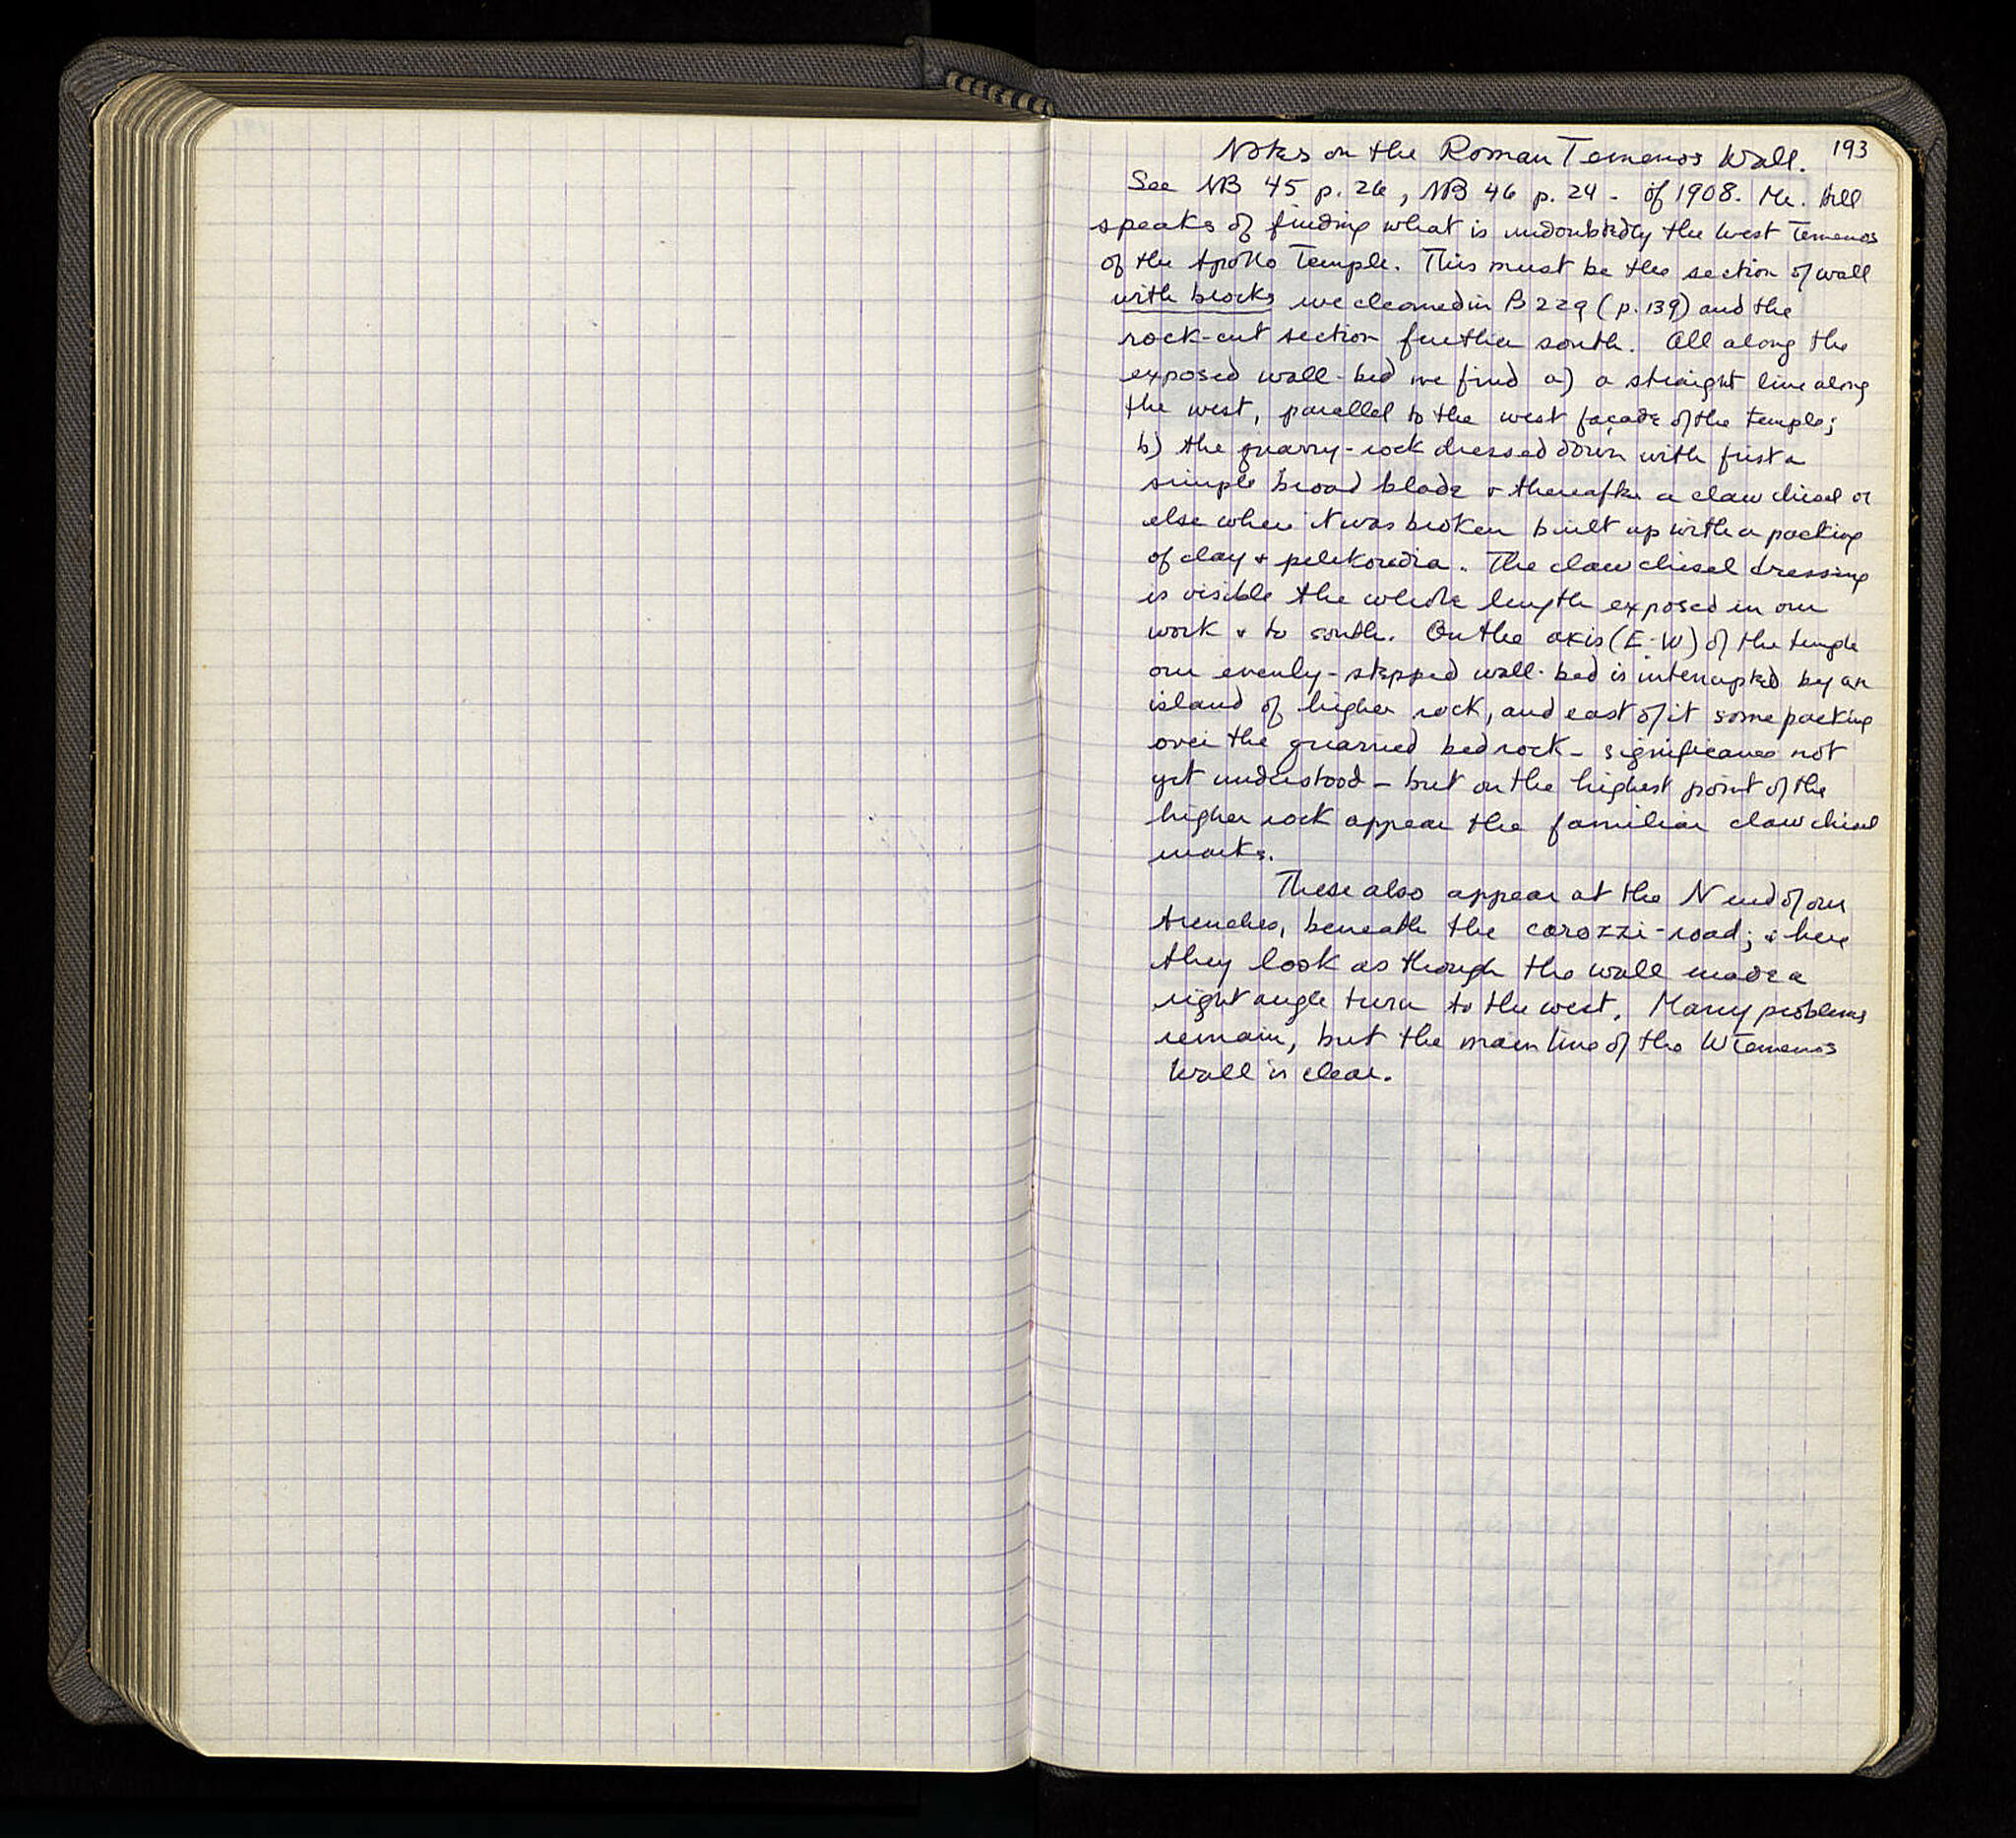 193
Notes on the Roman Temenos Wall.
See NB 45 p. 26, NB 46 p. 24 - of 1908. Mr. Hill
speaks of finding what is undoubtedly the West Temenos
of the Apollo Temple. This must be the section of wall
with blocks we cleaned in B 229 (p. 139) and the
rock-cut section further south. All along the
exposed wall-bed we find a) a straight line along
the west, parallel to the west façade of the temple;
b) the quarry-rock dressed down with first a
simple broad blade + thereafter a claw chisel or
else where it was broken built up with a packing
of clay + pelekoudia. The claw chisel dressing
is visible the whole length exposed in our
work + to south. On the axis (E-W) of the temple
our evenly-stepped wall-bed is interrupted by an
island of higher rock, and east of it some packing
over the quarried bedrock - significance not
yet understood - but on the highest point of the
higher rock appear the familiar claw chisel
marks.
These also appear at the N end of our
trenches, beneath the carozzi-road; + here
they look as though the wall made a
right angle turn to the west. Many problems
remain, but the main line of the W Temenos
Wall is clear.